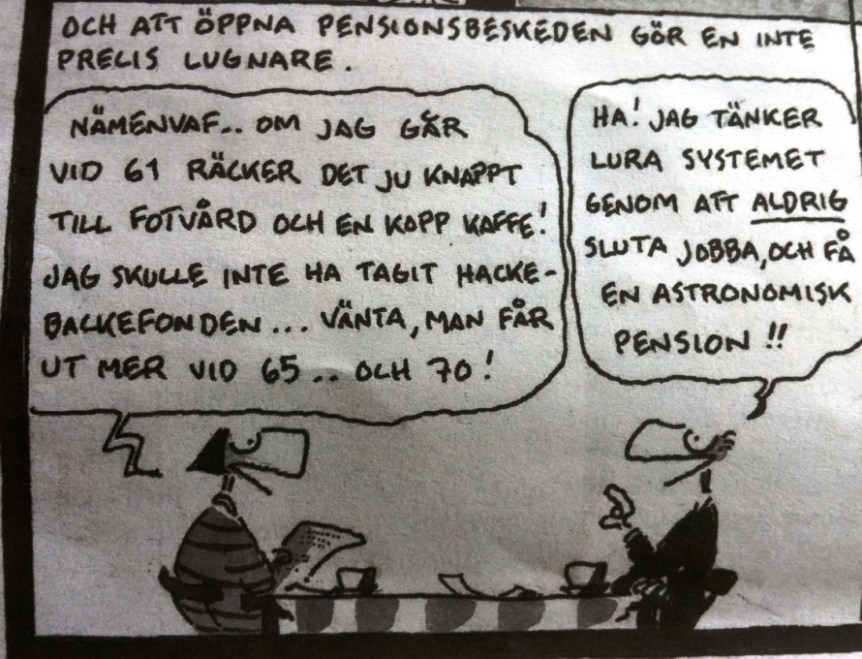 OCH ATT ÖPPNA PENSIONSBESKEDEN GÖR EN INTE
PRECIS LUGNARE.
NÄMENVAF.. OM JAG GÅR
VID 61 RÄCKER DET JU KNAPPT
TILL FOTVÅRD OCH EN KOPP KAFFE!
JAG SKULLE INTE HA TAGIT HACKE-
BACKEFONDEN... VÄNTA, MAN FÅR
UT MER VID 65.. OCH 70!
HA! JAG TÄNKER
LURA SYSTEMET
GENOM ATT ALDRIG
SLUTA JOBBA, OCH FÅ
EN ASTRONOMISK
PENSION!!